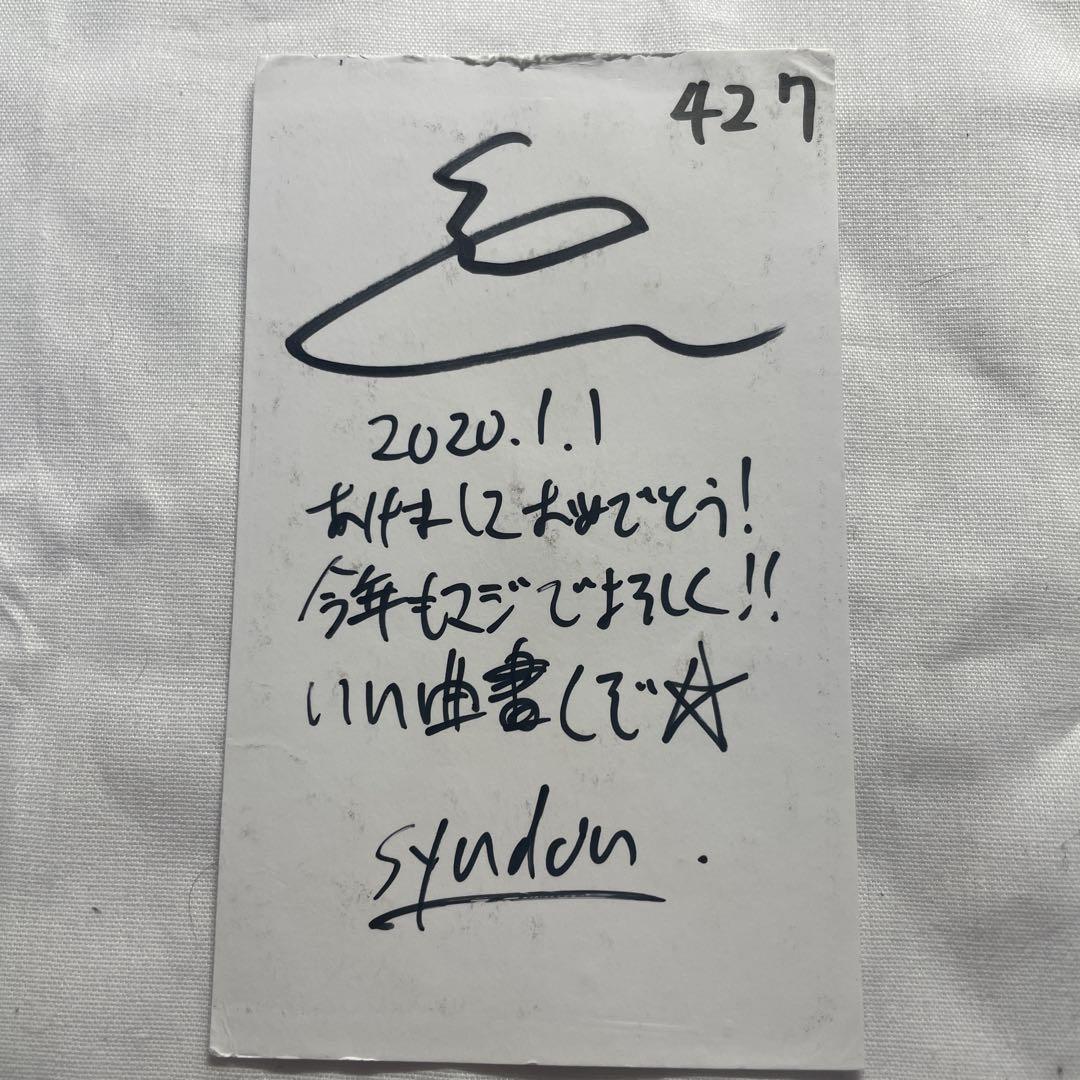 427
2020.1.1
あけましておめでとう!
今年もマジでよろしく!!
いい曲書くぞ☆
syudou.